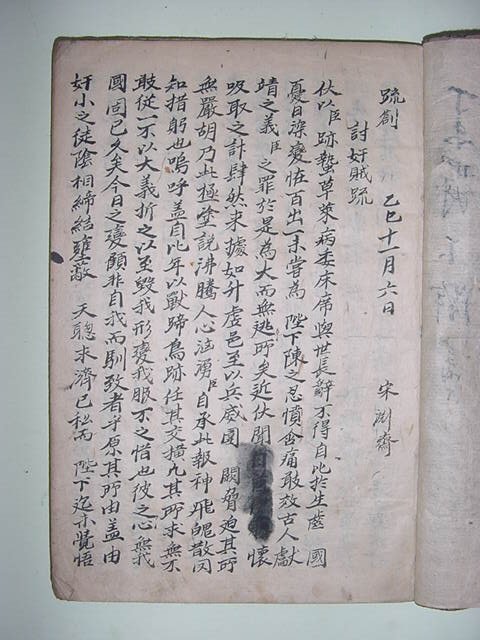 疏劄
討奸賊疏 乙巳十一月六日 宋淵齊
伏以臣跡蟄草萊病委床席與世長辭不得自比於生 國
憂日深變怪百出一未嘗為 陛下陳之忍憤含痛敢效古人獻
靖之義臣之罪於是為大而無逃所矣近伏聞 懷
吸取之計肆然來據如升虛邑至以兵威圍 闕脅迫其所
無嚴胡乃此極塗說沸騰人心洶 臣自承此報神飛魄散罔
知措躬也嗚呼蓋自比年以獸蹄鳥跡任其交橫凡其所求無不
敢從一不以大義折之以至毀我形變我服不之惜也彼之心無我
國固已久矣今日之變顧非自我而馴致者乎原其所由蓋由
奸小之徒陰相締結壅蔽 天聰求濟已私而 陛下迄未覺悟